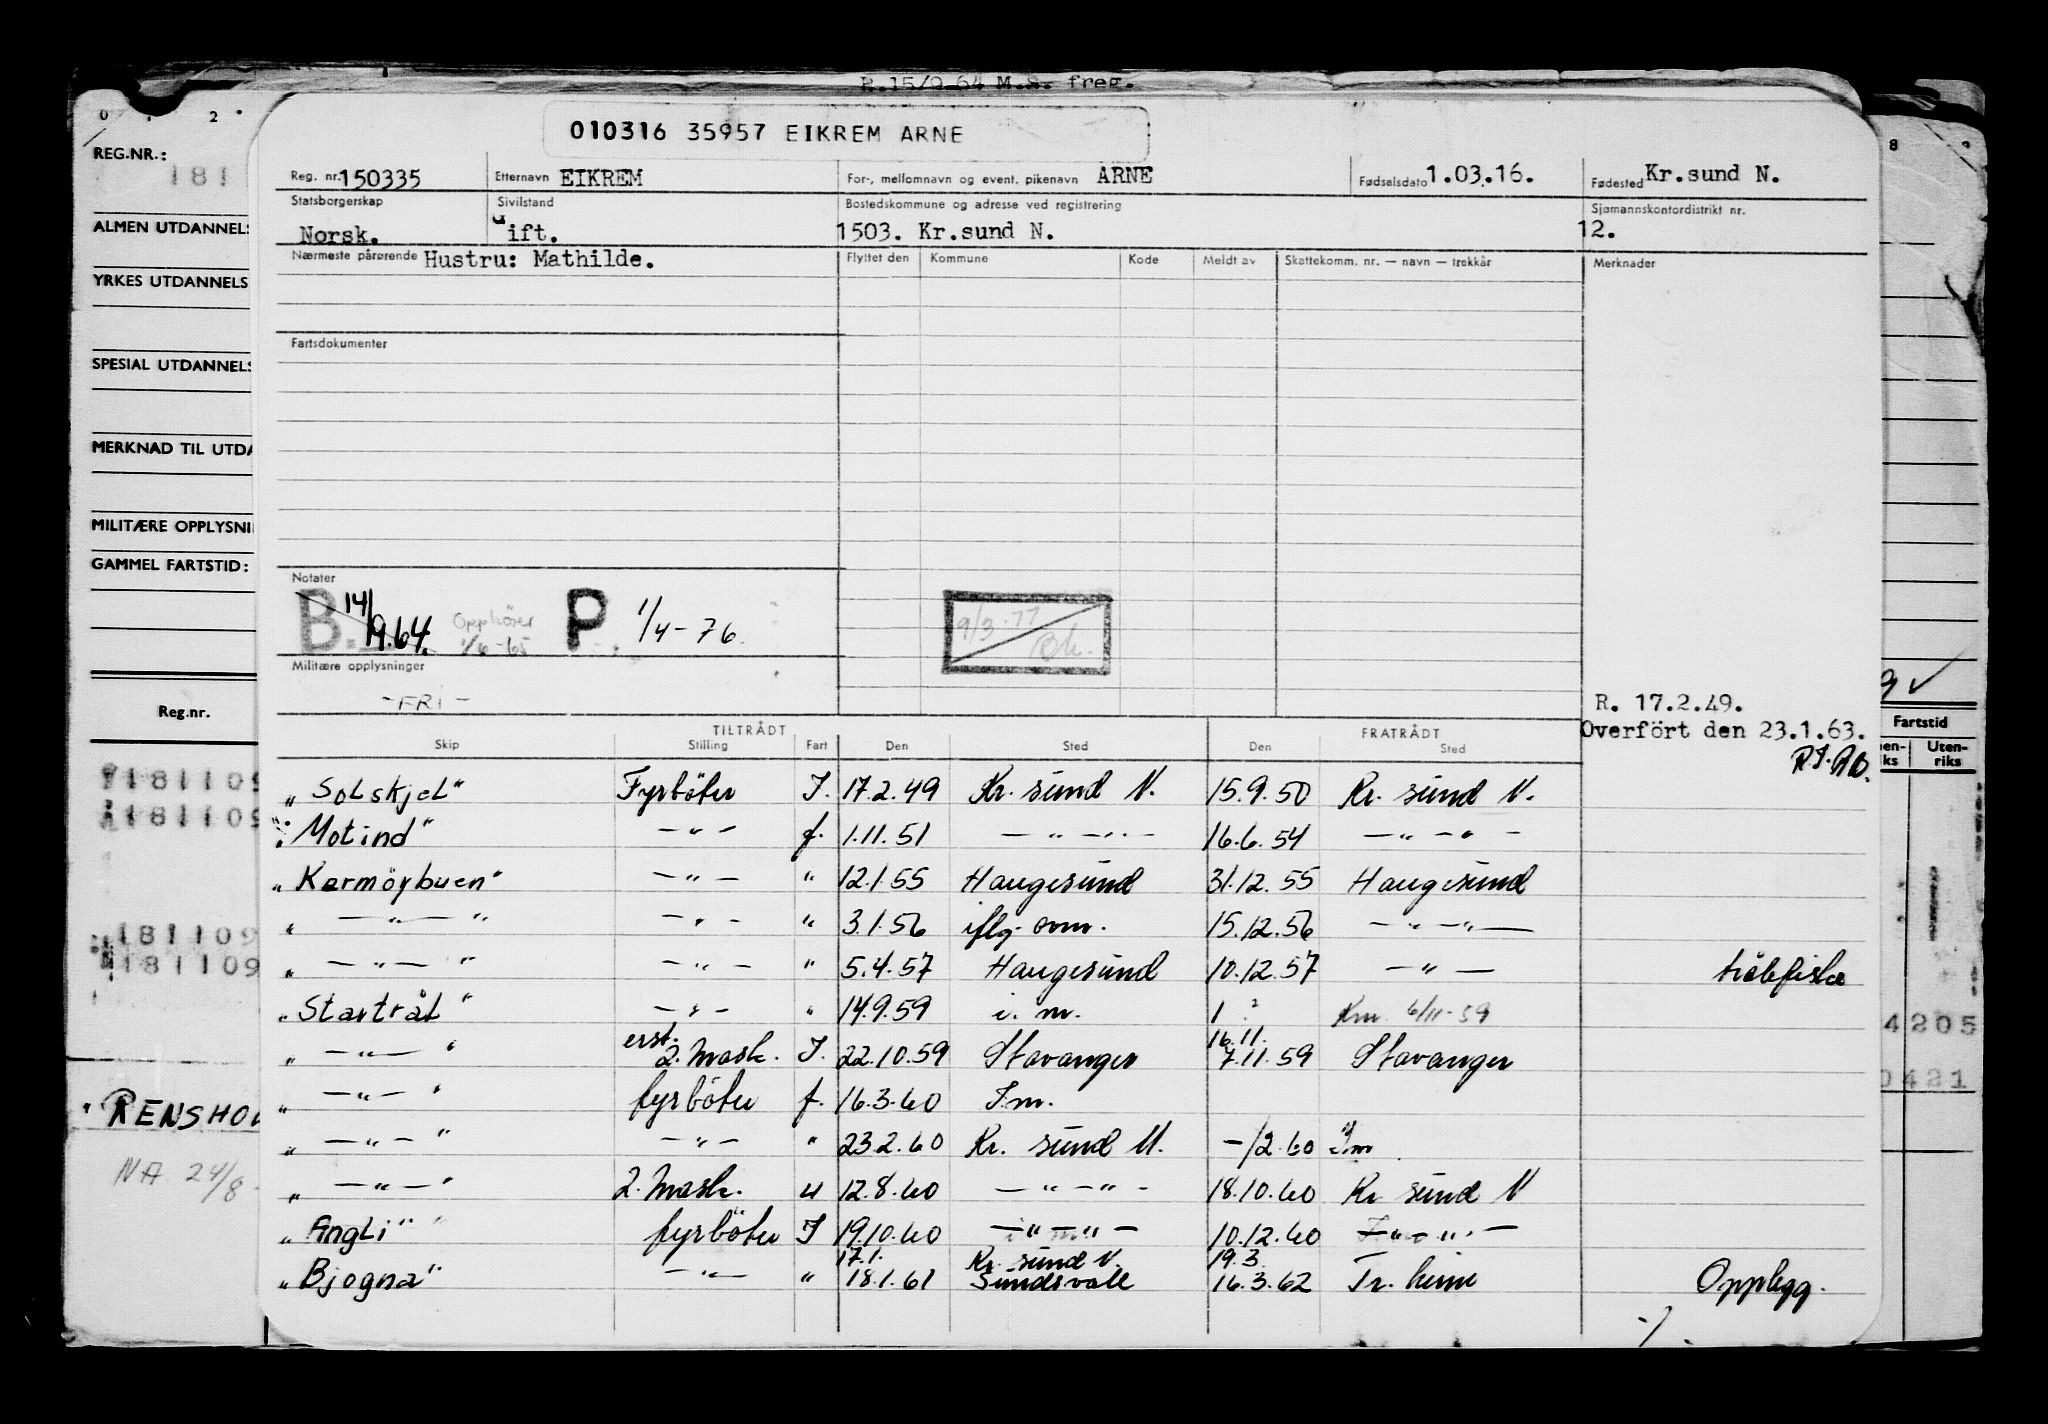 R.15/9-64 M.s. freg.
010316 35957 EIKREM ARNE
Reg. nr. 150335 Etternavn EIKREM For-, mellomnavn og event. pikenavn ARNE Fødselsdato 1.03.16. Fødested Kr.sund N.
Statsborgerskap Sivilstand Bostedskommune og adresse ved registrering Sjømannskontordistrikt nr.
Norsk. Gift. 1503. Kr.sund N. 12.
Nærmeste pårørende Hustru: Mathilde. Flyttet den Kommune Kode Meldt av Skattekomm. nr. — navn — trekkår Merknader
Fartsdokumenter
Notater
B. 14/9.64. Opphører 1/6-65 P 1/4-76. 9/3.77 Bh.
Militære opplysninger
-FRI-
R. 17.2.49.
Overfört den 23.1.63.
TILTRÅDT FRATRÅDT
Skip Stilling Fart Den Sted Den Sted
"Solskjel" Fyrböter I. 17.2.49 Kr. sund N. 15.9.50 Kr. sund N.
"Motind" —"— f. 1.11.51 —"—"— 16.6.54 —"—"—
"Karmöybuen" —"— " 12.1.55 Haugesund 31.12.55 Haugesund
" —"— " —"— " 3.1.56 iflg. om. 15.12.56 —"—"—
" —"— " —"— " 5.4.57 Haugesund 10.12.57 —"—
"Startrål" —"— " 14.9.59 i. m. 1 ? 6/11-59
" —"— " erst. 2. mask. I. 22.10.59 Stavanger 16.11. 7.11.59 Stavanger
" —"— " fyrböter f. 16.3.60 I.m.
" —"— " —"— " 23.2.60 Kr. sund N. -/2.60 I.m
" —"— " 2. mask. " 12.8.60 —"—"— 18.10.60 Kr sund N
"Angli" fyrböter I 19.10.60 —"—"— 10.12.60 —"—"—
"Bjogna" —"— " 17.1. 18.1.61 Kr. sund N. Sundsvall 19.3. 16.3.62 Tr. heim Opplegg.
REG.NR.:
181
ALMEN UTDANNELS
YRKES UTDANNELS
SPESIAL UTDANNELS
MERKNAD TIL UTDA
MILITÆRE OPPLYSNI
GAMMEL FARTSTID:
Reg.nr.
181109
181109
181109
181109
"RENSHOL
NA 24/8
Fartstid
en-ks Uten-riks
4205
0421